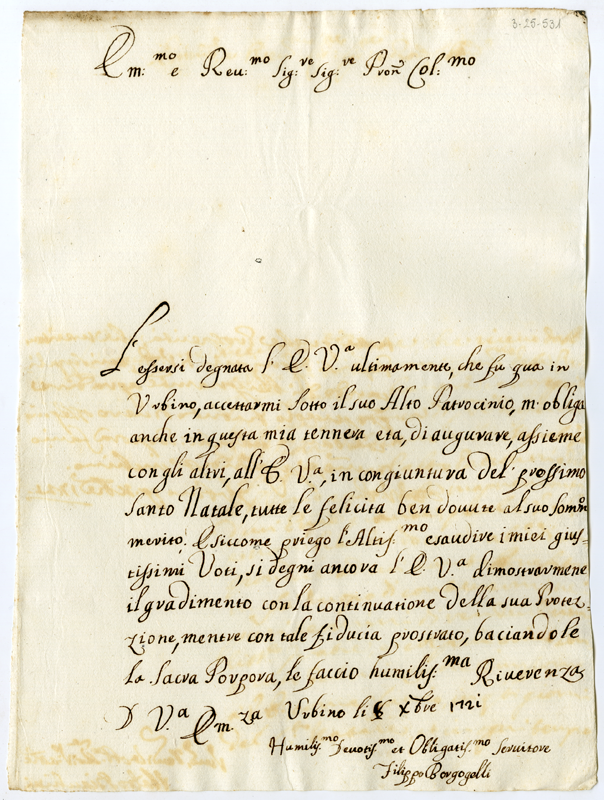 3-25-531
Em:mo e Reu:mo Sig:re Sig:re Pron Col:mo
L'essersi degnata l'E. V.a ultimamente, che fu qua in
Urbino, accettarmi sotto il suo Alto Patrocinio, m'obliga
anche in questa mia tennera eta, di augurare, assieme
con gli altri, all'E. V.a, in congiuntura del prossimo
Santo Natale, tutte le felicita ben dovute al suo som̃o
merito. E siccome priego l'Altis.mo esaudire i miei gius-
tissimi Voti, si degni ancora l'E. V.a dimostrarmene
il gradimento con la continuatione della sua Protez-
zione, mentre con tale fiducia prostrato, baciandole
la Sacra Porpora, le faccio humilis.ma Riverenza
D V.a Em.za Urbino li Xbre 1721
Humilis.mo Devotis.mo et Obligatis.mo Servitore
Filippo Borgogelli